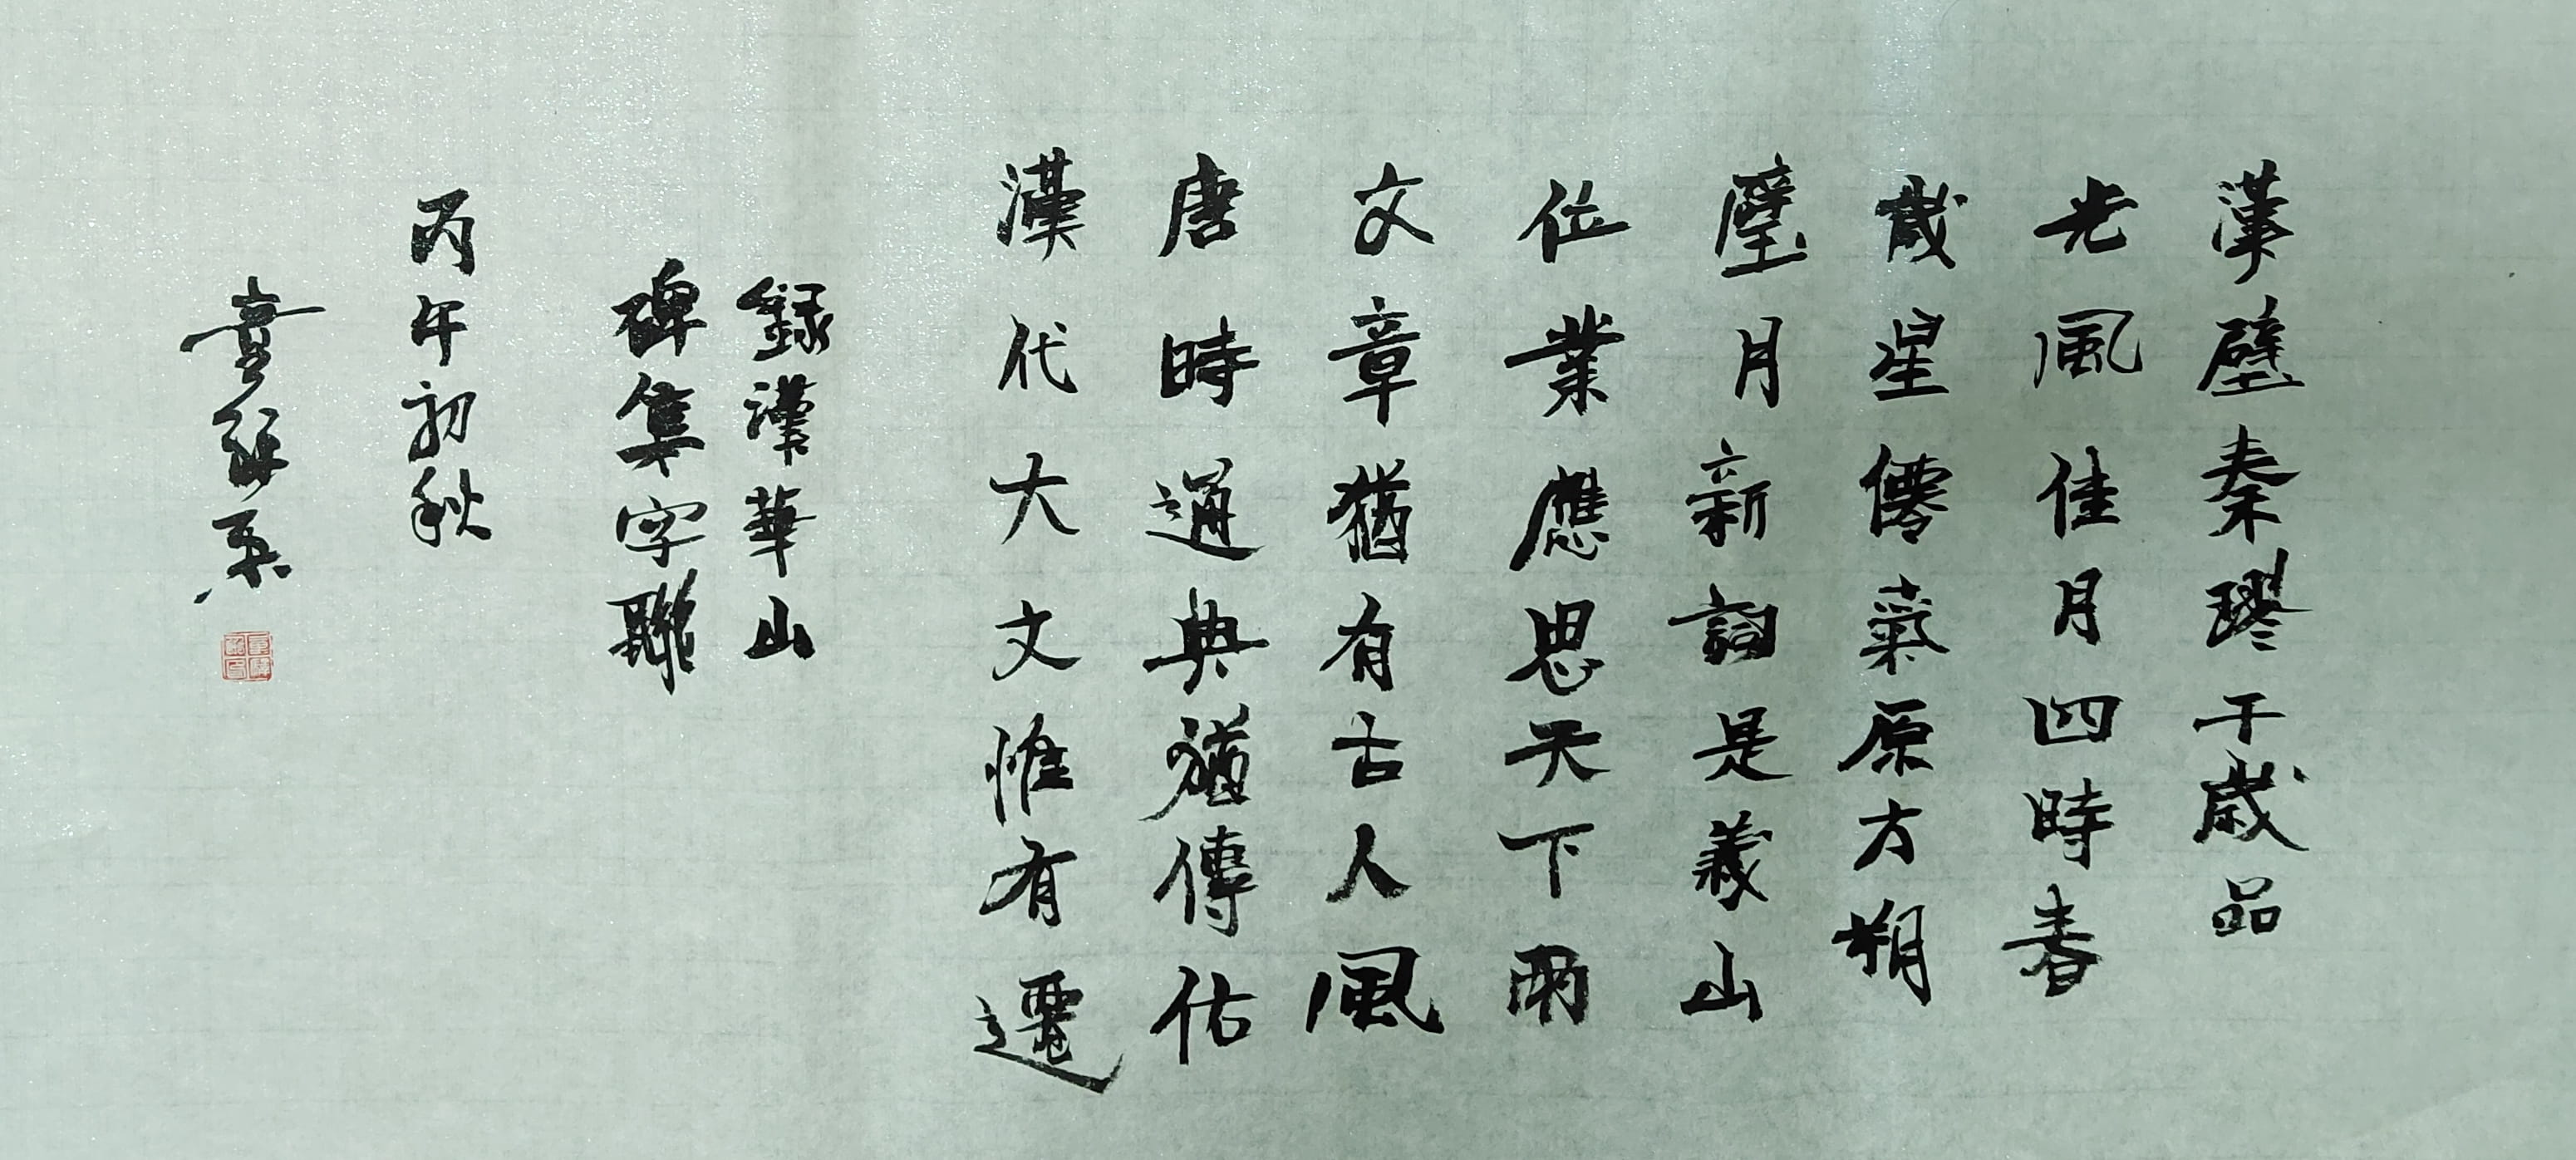 漢璧秦璆千歲品
光風佳月四時春
歲星僊氣原方朔
璧月新詞是義山
位業應思天下雨
文章猶有古人風
唐時通典猶傳佑
漢代大文惟有遷
錄漢華山
碑集字聯
丙午初秋